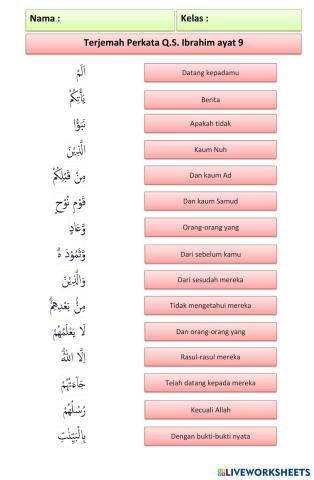 Nama :
Kelas :
Terjemah Perkata Q.S. Ibrahim ayat 9
اَلَمْ
Datang kepadamu
يَأْتِكُمْ
Berita
نَبَؤُا
Apakah tidak
الَّذِيْنَ
Kaum Nuh
مِنْ قَبْلِكُمْ
Dan kaum Ad
قَوْمِ نُوْحٍ
Dan kaum Samud
وَّعَادٍ
Orang-orang yang
وَّثَمُوْدَ ەۗ
Dari sebelum kamu
وَالَّذِيْنَ
Dari sesudah mereka
مِنْۢ بَعْدِهِمْۗ
Tidak mengetahui mereka
لَا يَعْلَمُهُمْ
Dan orang-orang yang
اِلَّا اللّٰهُ
Rasul-rasul mereka
جَاۤءَتْهُمْ
Telah datang kepada mereka
رُسُلُهُمْ
Kecuali Allah
بِالْبَيِّنٰتِ
Dengan bukti-bukti nyata
LIVEWORKSHEETS